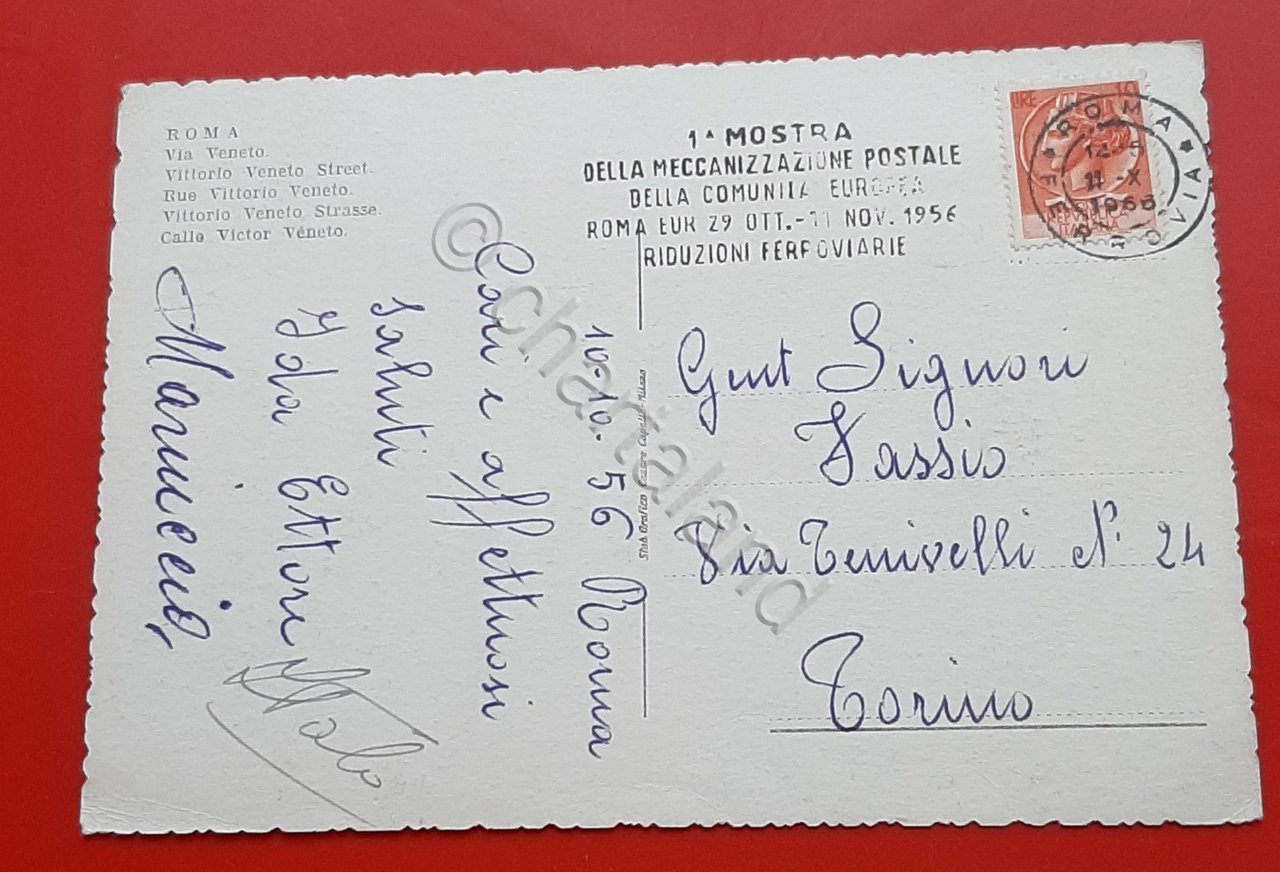 ROMA
Via Veneto.
Vittorio Veneto Street.
Rue Vittorio Veneto.
Vittorio Veneto Strasse.
Calle Victor Véneto.
1ª MOSTRA
DELLA MECCANIZZAZIONE POSTALE
DELLA COMUNITÀ EUROPEA
ROMA EUR 29 OTT.-11 NOV. 1956
RIDUZIONI FERROVIARIE
LIRE 10
REPVBBLICA
ITALIANA
ROMA
FERROVIA
12-5
11-X
1956
10-10.56 Roma
Cari e affettuosi
saluti
Ida Ettore
Mariuccia
Italo
Gent Signori
Vassio
Via Tenivelli N. 24
Torino
Stab. Grafico Cesare Capello - Milano
© chartaland